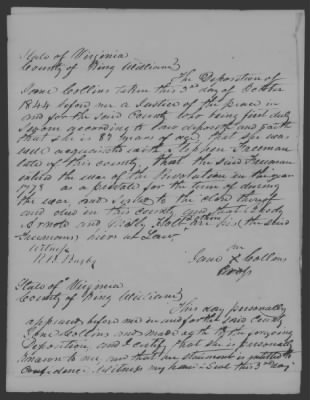 State of Virginia
County of King William
The Deposition of
Jane Collins taken this 3rd day of October
1844 before me a Justice of the peace in
and for the said County who being first duly
Sworn according to law deposeth and saith
that she is 87 years of age that she was
well acquainted with Stephen Freeman
late of this county, that the said Freeman
entered the war of the Revolution in the year
177 as a private for the term of during
the war, and served to the close thereof
and died in this county and that
Arnold and Holt are the said
Freemans heirs at Law.
Witness
R B
Jane X Collins
State of Virginia
County of King William
This day personally
appeared before me in and for the said County
Jane Collins and made oath to the forgoing
Deposition, and I certify that she is personally
known to me and that her statement is entitled to
Confidence. Witness my hand this 3rd day